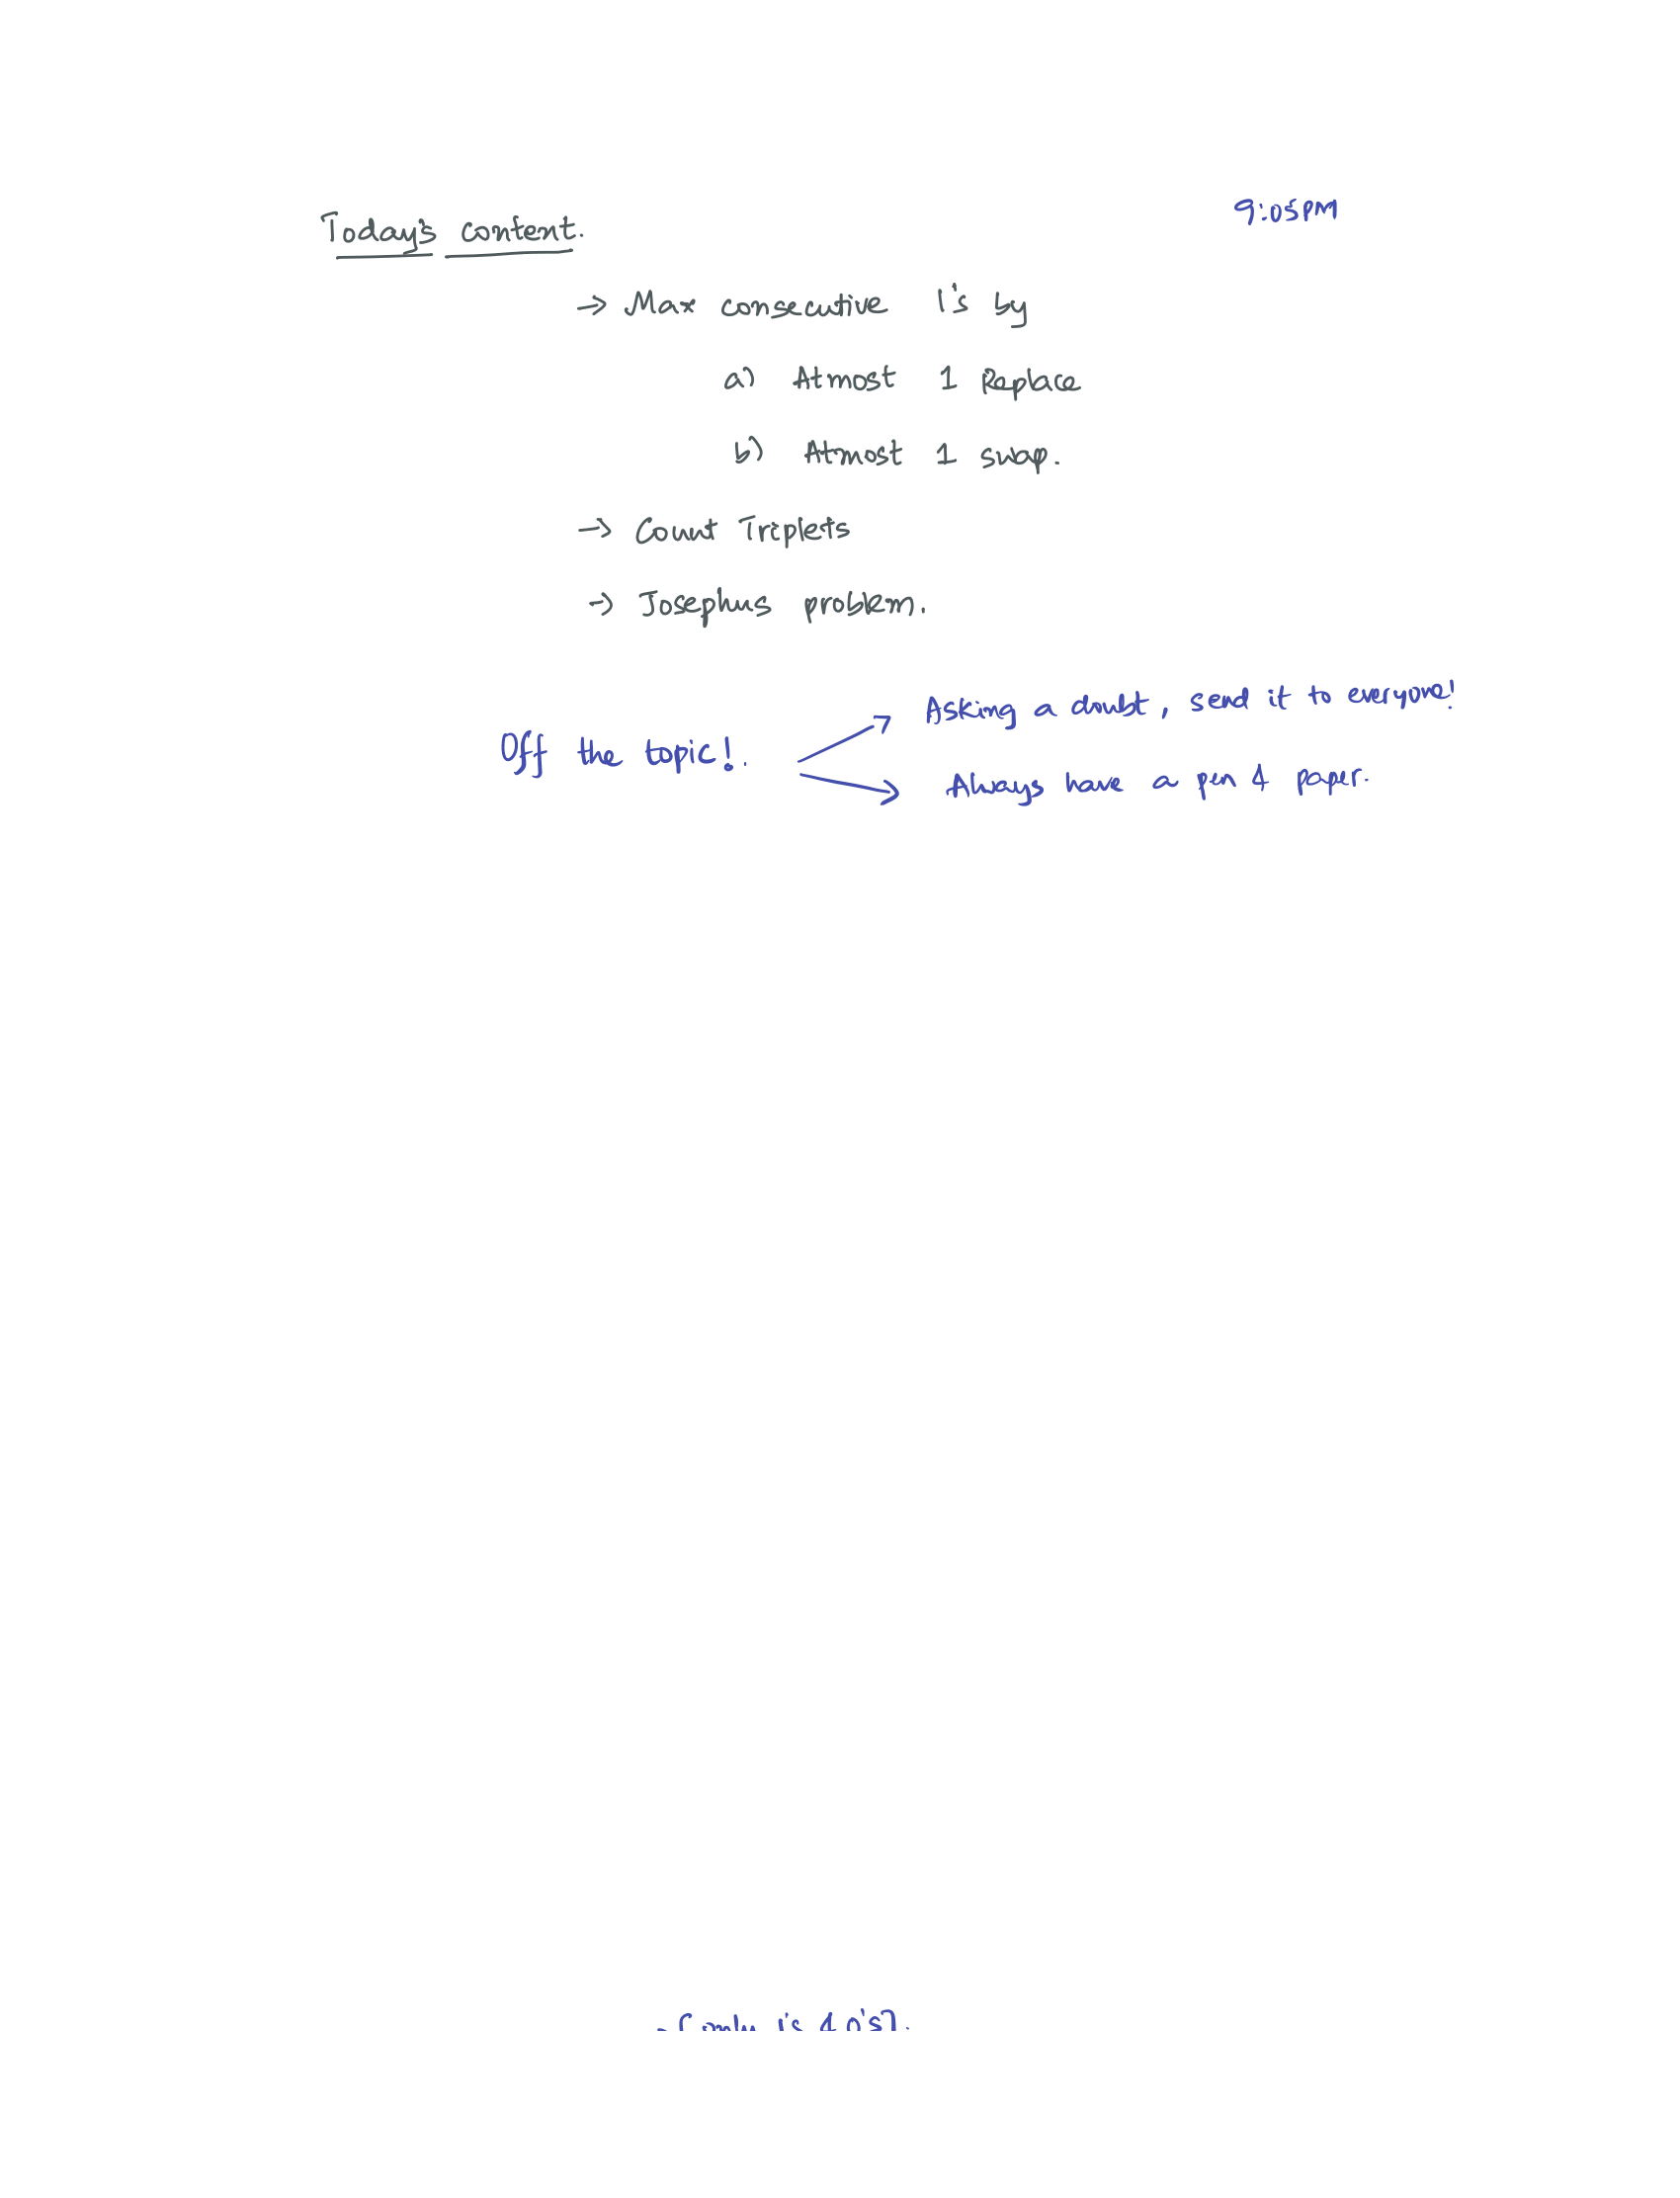 9:05PM
Today's content.
→ Max consecutive 1's by
a) Atmost 1 Replace
b) Atmost 1 swap.
→ Count Triplets
→ Josephus problem.
Off the topic!.
Asking a doubt, send it to everyone!
Always have a pen & paper.
[only 1's & 0's].